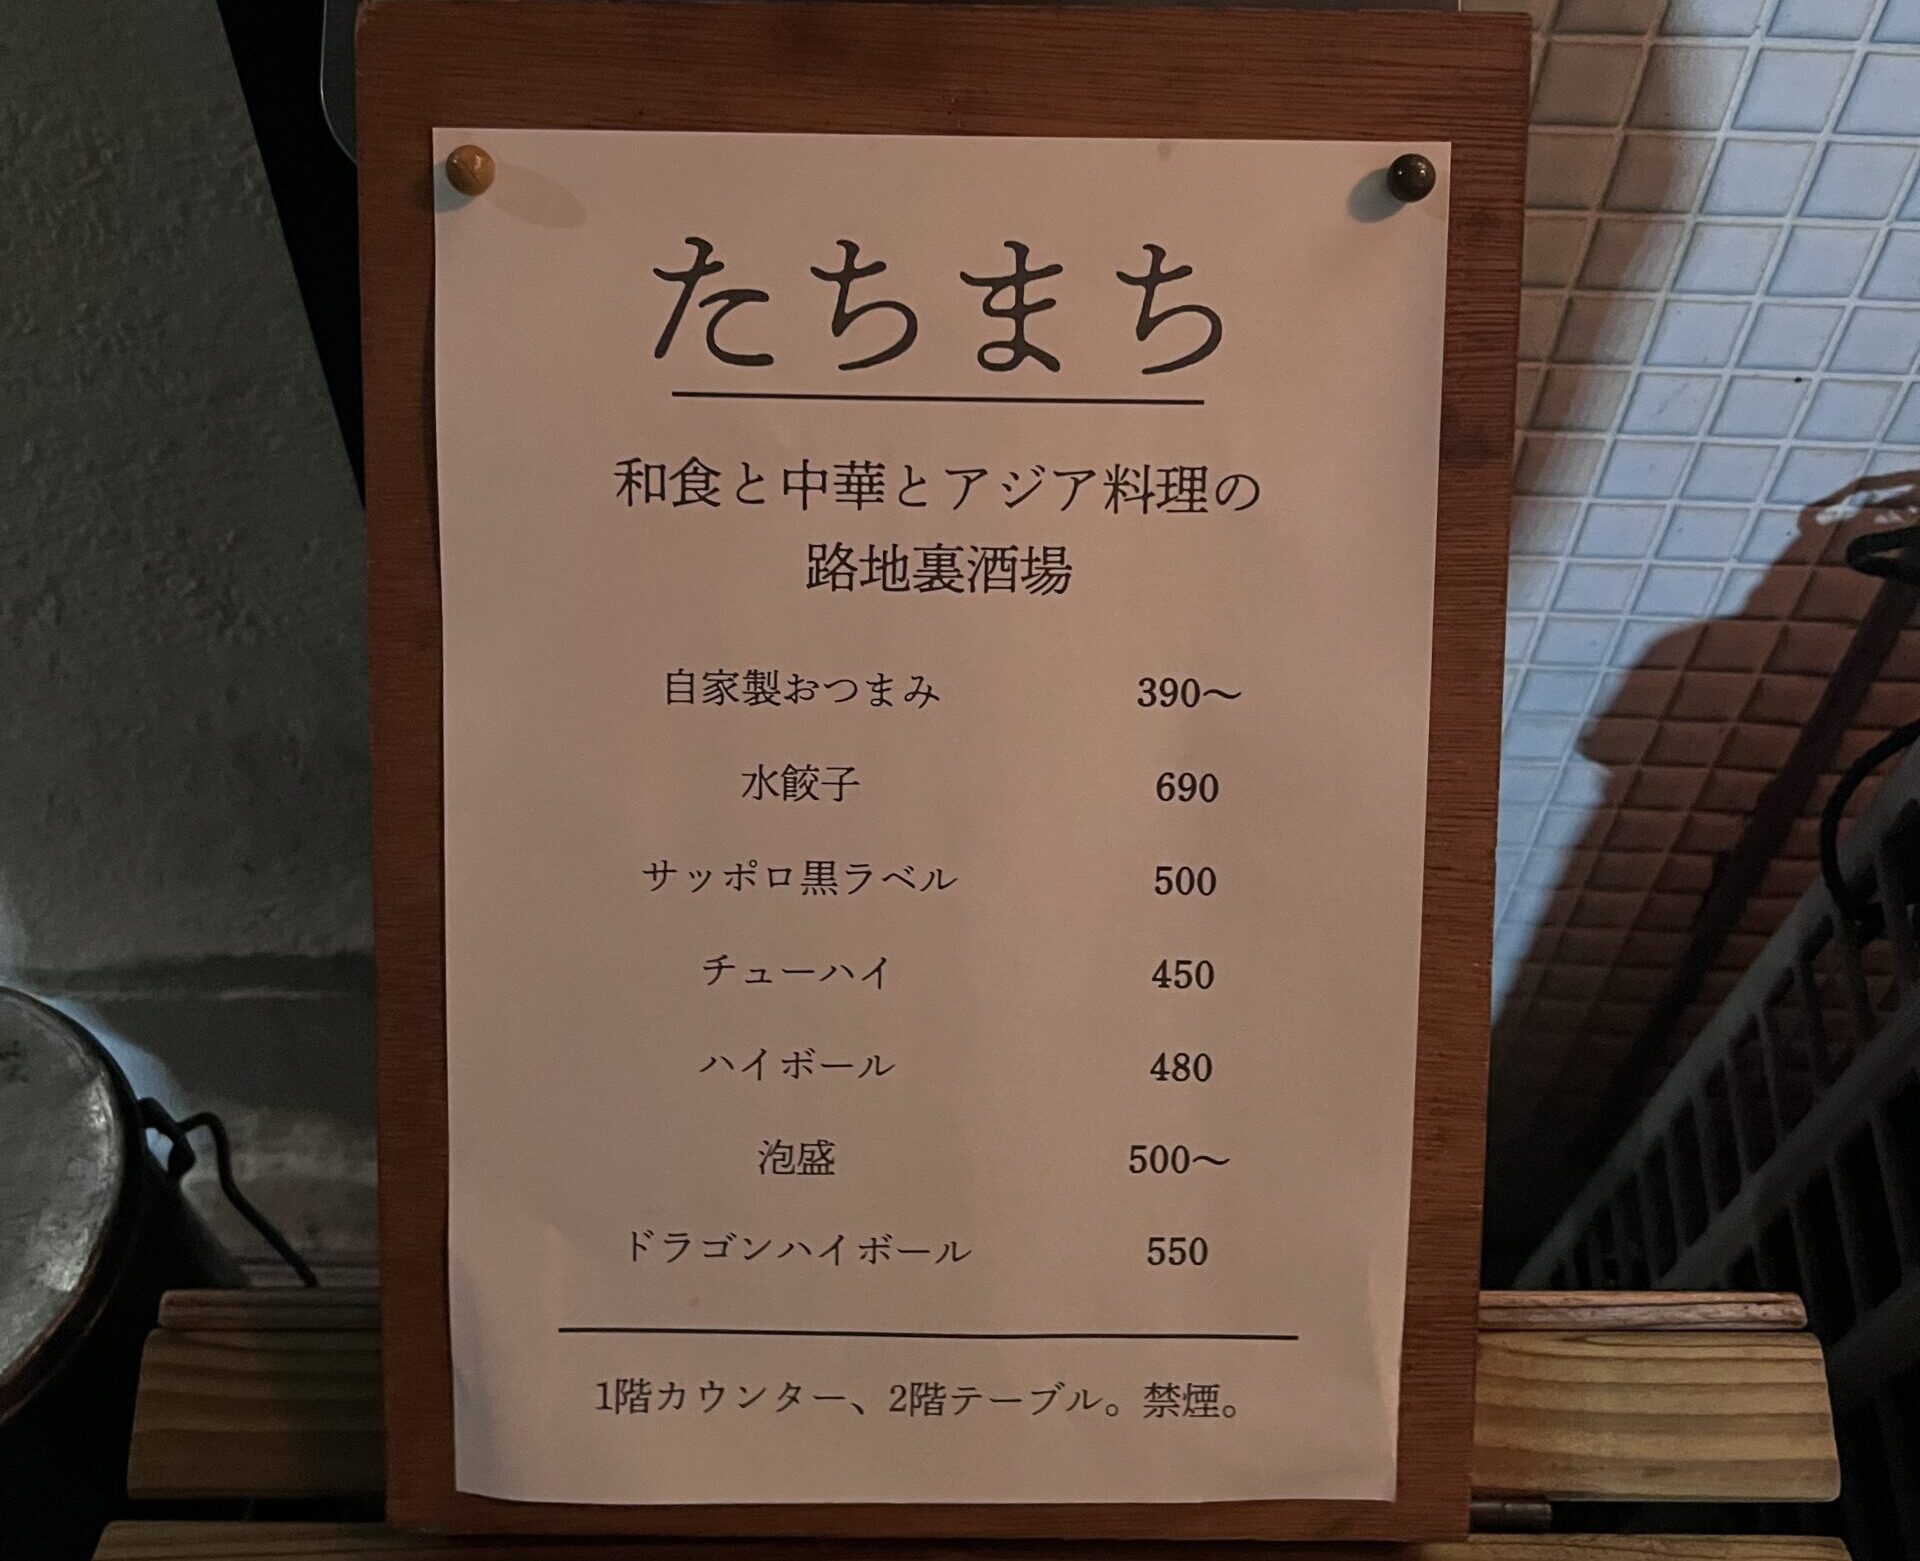 たちまち
和食と中華とアジア料理の
路地裏酒場
自家製おつまみ 390〜
水餃子 690
サッポロ黒ラベル 500
チューハイ 450
ハイボール 480
泡盛 500〜
ドラゴンハイボール 550
1階カウンター、2階テーブル。禁煙。